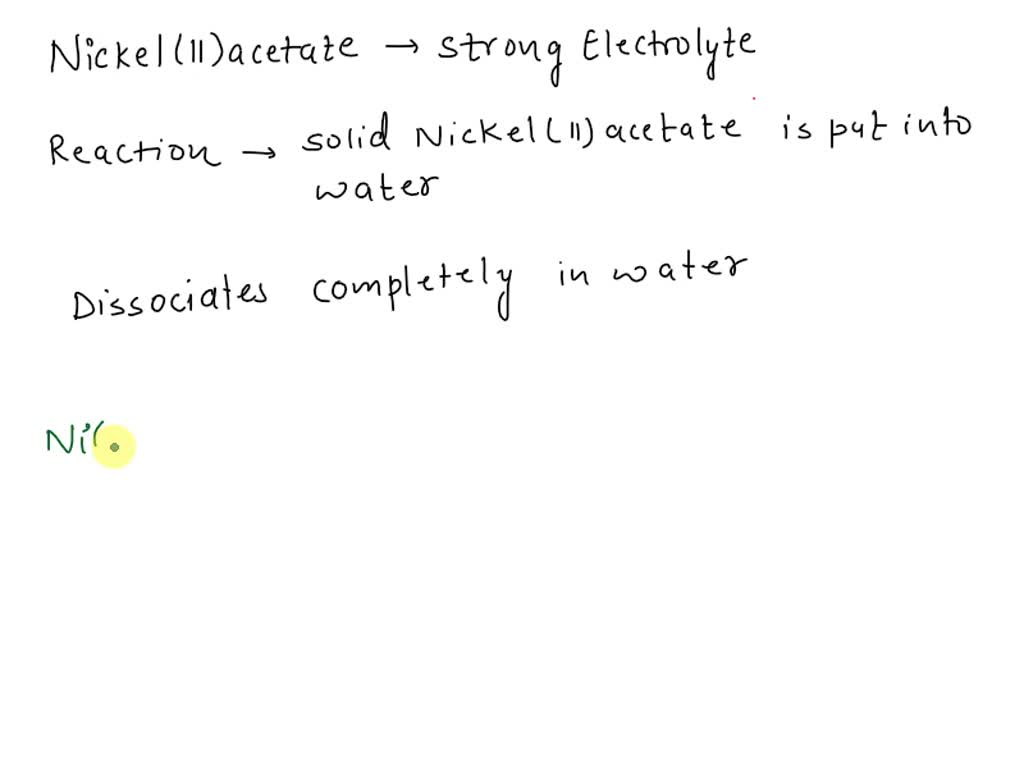 Nickel(II)acetate → strong Electrolyte
Reaction → solid Nickel(II)acetate is put into
water
Dissociates completely in water
Ni(